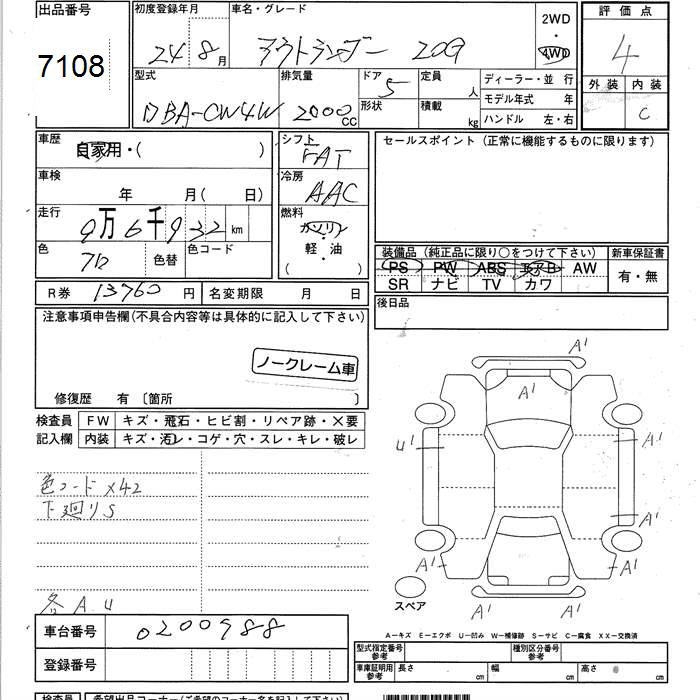 出品番号
7108
初度登録年月
24 8月
車名・グレード
アウトランダー 20G
2WD
・
4WD
評価点
4
外装 内装
C
型式
DBA-CW4W
排気量
2000 CC
ドア 5
形状
定員 人
積載 kg
ディーラー・並 行
モデル年式 年
ハンドル 左・右
車歴
自家用・( )
車検
年 月( 日)
走行
9万6千932 km
色
クロ
色替
色コード
シフト
FAT
冷房
AAC
燃料
ガソリン
・
軽・油
( )
セールスポイント (正常に機能するものに限ります)
装備品 (純正品に限り○をつけて下さい)
PS PW ABS エアB AW
SR ナビ TV カワ
新車保証書
有・無
R券 13760 円
名変期限 月 日
後日品
注意事項申告欄(不具合内容等は具体的に記入して下さい)
ノークレーム車
修復歴 有 〔箇所 〕
検査員
記入欄
FW キズ・飛石・ヒビ割・リペア跡・×要
内装 キズ・汚レ・コゲ・穴・スレ・キレ・破レ
色コード X42
下廻りS
各A.U
A1
A1
U1
A1
A1
A1
A1
スペア
A−キズ E−エクボ U−凹み W−補修跡 S−サビ C−腐食 XX−交換済
車台番号
0200988
登録番号
型式指定番号
参考
種別区分番号
参考
車庫証明用
参考
長さ cm
幅 cm
高さ cm
検査員
希望出品コーナー(ご希望のコーナー名を記入して下さい)